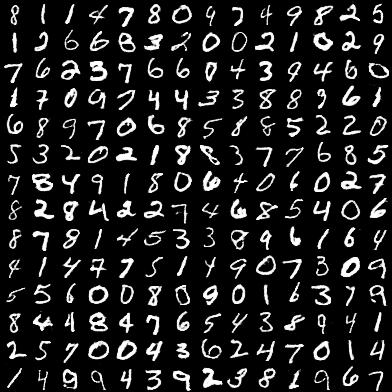 8 1 1 4 7 8 0 9 7 4 9 8 2 5
1 2 6 6 8 3 2 0 0 2 1 0 2 9
7 6 2 3 7 6 6 0 4 3 9 4 6 0
1 7 0 9 7 4 4 3 3 8 8 9 6 1
6 8 9 7 0 6 8 5 8 8 5 2 2 0
5 3 2 0 2 1 8 8 3 7 7 6 8 5
7 8 4 9 1 8 0 6 4 0 6 0 2 7
8 2 8 4 2 2 7 4 6 8 5 4 0 6
8 7 8 1 4 5 3 3 8 9 6 1 6 4
4 1 4 7 7 5 1 4 9 0 7 3 0 9
5 5 6 0 0 8 0 9 0 1 6 3 7 8
8 4 4 8 4 7 6 5 4 3 8 9 4 1
2 5 7 0 0 4 3 6 2 4 7 0 1 4
1 4 9 9 4 3 9 2 3 8 1 9 6 7